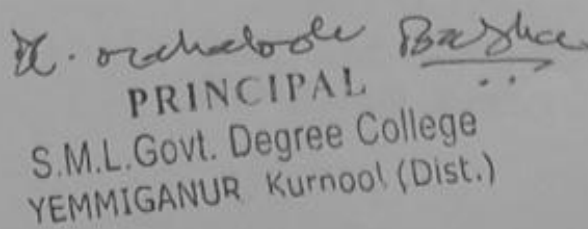 Basha
PRINCIPAL
S.M.L.Govt. Degree College
YEMMIGANUR Kurnool (Dist.)